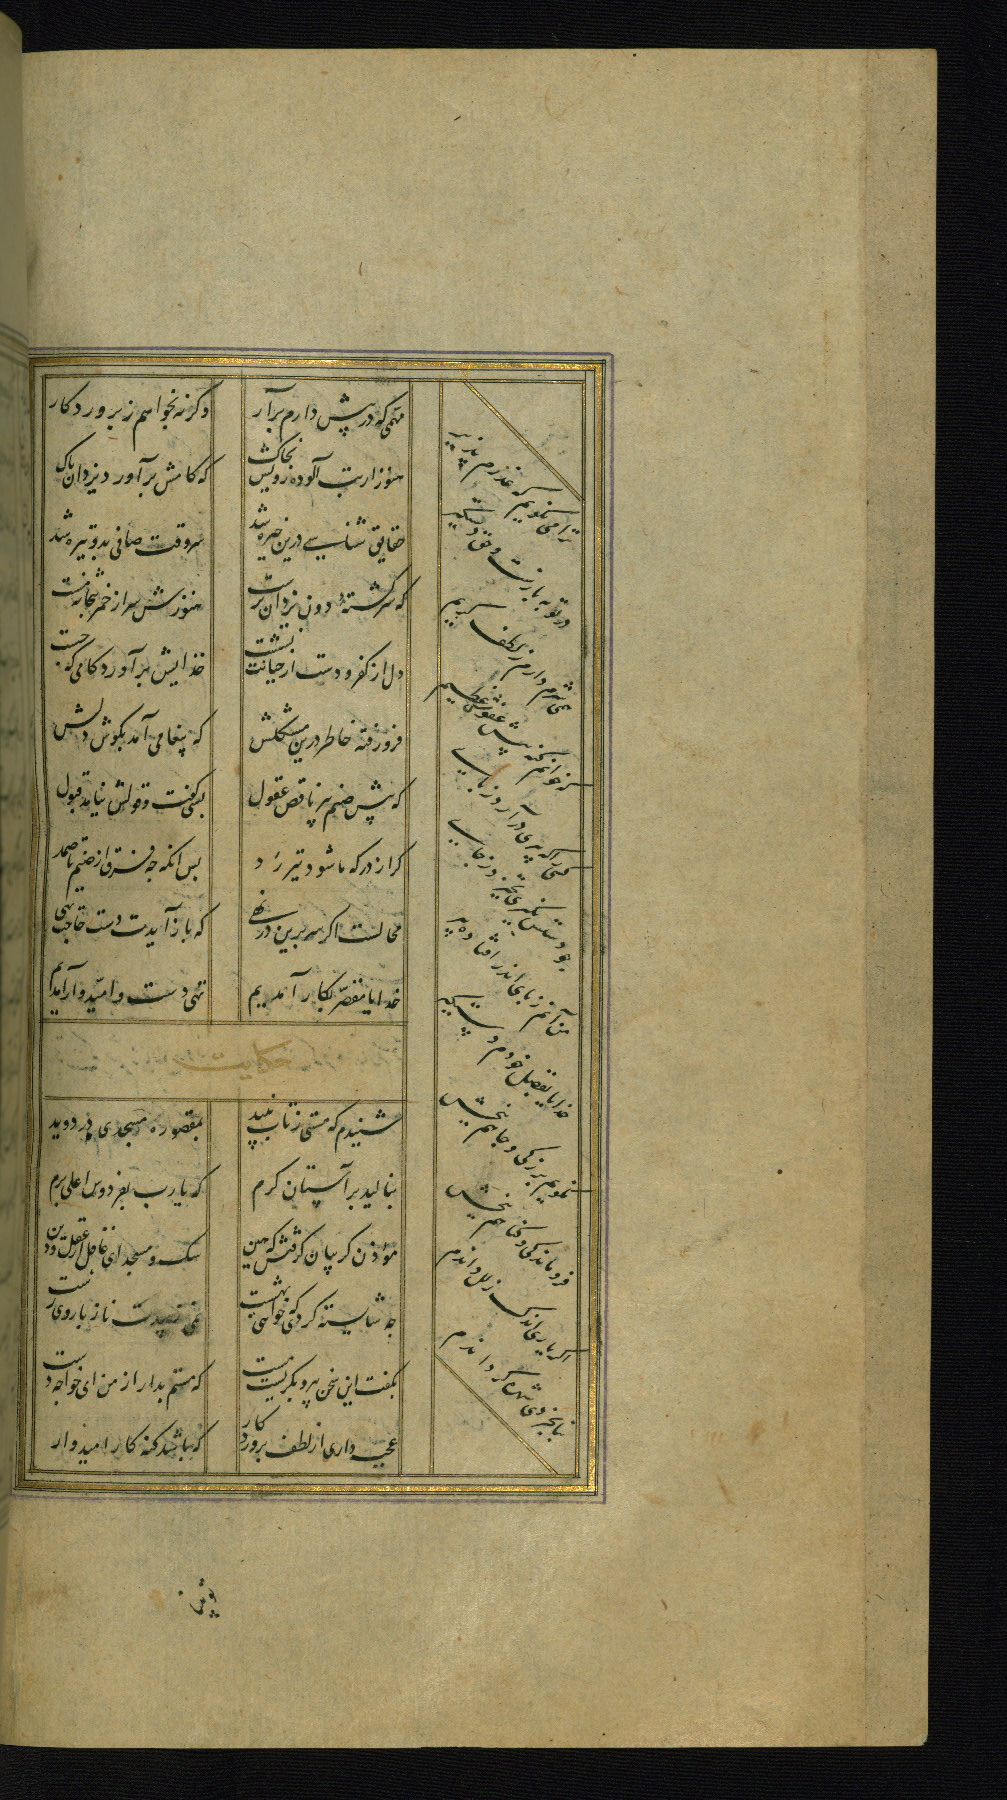 مهمی که در پیش دارم برآر وکرنه بخواهم ز پروردکار
هنوز از بت آلوده رویش بخاک که کامش برآورد یزدان پاک
حقایق شناسی درین خیره شد سر وقت صافی بدو تیره شد
که سرکشتهٔ دون یزدان پرست هنوزش سر از خمر بتخانه مست
دل از کفر و دست از خیانت نشست خدایش برآورد کامی که جست
فرو رفته خاطر درین مشکلش که پیغامی آمد بکوش دلش
که پیش صنم پیر ناقص عقول بسی کفت و قولش نیامد قبول
کر از درکه ما شود نیز رد پس انکه چه فرق از صنم تا صمد
محالست اکر سر برین در نهی که باز آیدت دست حاجت تهی
خدایا مقصر بکار آمدیم تهی دست و امیدوار آمدیم
حکایت
شنیدم که مستی ز تاب نبید بمقصوره مسجدی در دوید
بنالید بر آستان کرم که یارب بفردوس اعلی برم
مؤذن کریبان کرفتش که هین سک و مسجد ای غافل از عقل و دین
چه شایسته کردی که خواهی بهشت نمی زیبدت ناز با روی زشت
بکفت این سخن پیر و بکریست مست که مستم بدار از من ای خواجه دست
عجب داری از لطف پروردکار که باشد کنه کار امیدوار
ترا می نکویم که عذرم پذیر
در توبه بازست و حق دستکیر
همی شرم دارم ز لطف کریم
که خوانم کنه پیش عفوش عظیم
کسی را که پیری درآرد ز پای
چو دستش نکیری نخیزد ز جای
من آنم ز پای اندر افتاده پیر
خدایا بفضل خودم دستکیر
نکویم بزرکی و جاهم ببخش
فروماندکی و کناهم ببخش
اکر یاری اندک زلل داندم
بنابخردی شهره کرداندم
تو بینا